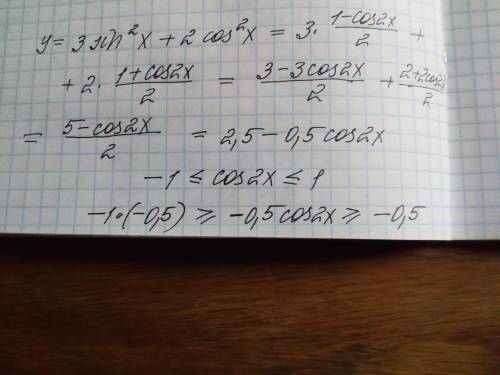 y = 3 sin²x + 2 cos²x = 3 · (1-cos2x)/2 +
+ 2 · (1+cos2x)/2 = (3-3cos2x)/2 + (2+2cos2x)/2
= (5-cos2x)/2 = 2,5 - 0,5 cos2x
-1 ≤ cos2x ≤ 1
-1·(-0,5) ≥ -0,5cos2x ≥ -0,5